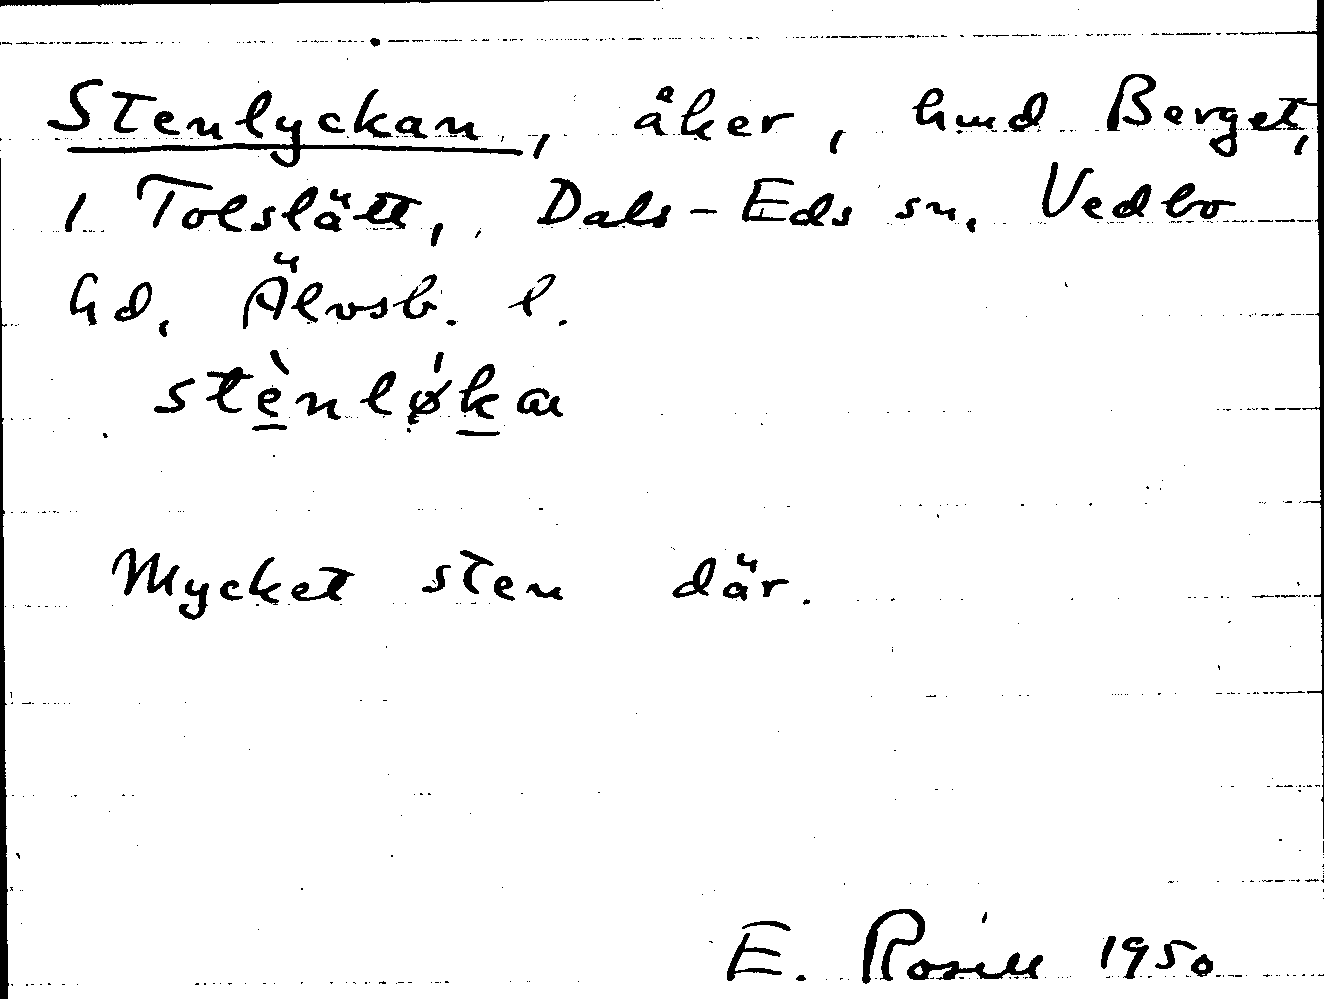 Stenlyckan, åker, hmd Berget,
i Tolslätt, Dals-Eds sn, Vedbo
hd, Älvsb. l.
stènløka
Mycket sten där.
E. Rosell 1950